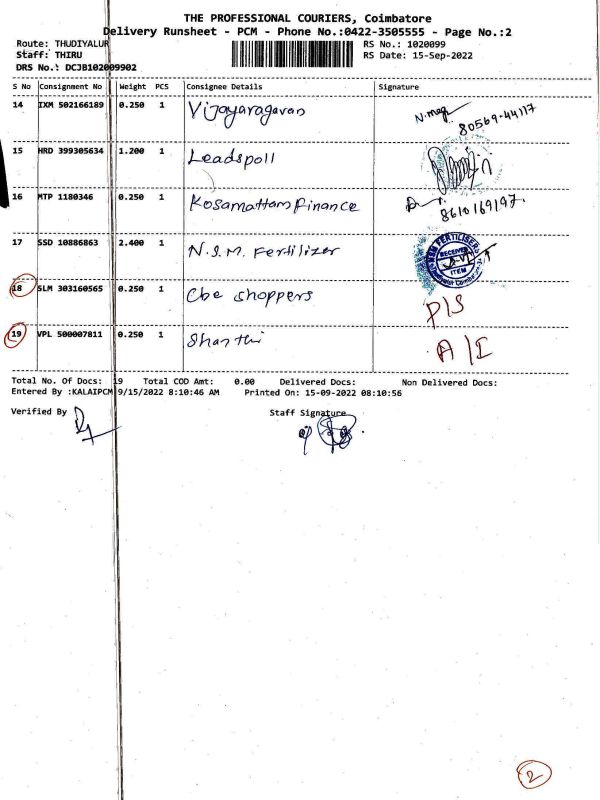 THE PROFESSIONAL COURIERS, Coimbatore
Delivery Runsheet - PCM - Phone No.:0422-3505555 - Page No.:2
Route: THUDIYALUR RS No.: 1020099
Staff: THIRU RS Date: 15-Sep-2022
DRS No.: DCJB102009902
S No Consignment No Weight PCS Consignee Details Signature
14 IXM 502166189 0.250 1 Vijayaragavan 80569-44117
15 HRD 399305634 1.200 1 Leadspoll
16 MTP 1180346 0.250 1 Kosamattam finance 8610169197.
17 SSD 10886863 2.400 1 N.S.M. Fertilizer RECEIVED ITEM
18 SLM 303160565 0.250 1 Cbe shoppers P/S
19 VPL 500007811 0.250 1 Shanthi A/I
Total No. Of Docs: 19 Total COD Amt: 0.00 Delivered Docs: Non Delivered Docs:
Entered By :KALAIPCM 9/15/2022 8:10:46 AM Printed On: 15-09-2022 08:10:56
Verified By Staff Signature
2